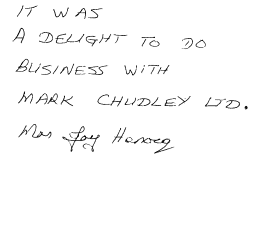 IT WAS
A DELIGHT TO DO
BUSINESS WITH
MARK CHUDLEY LTD.
Mrs Joy